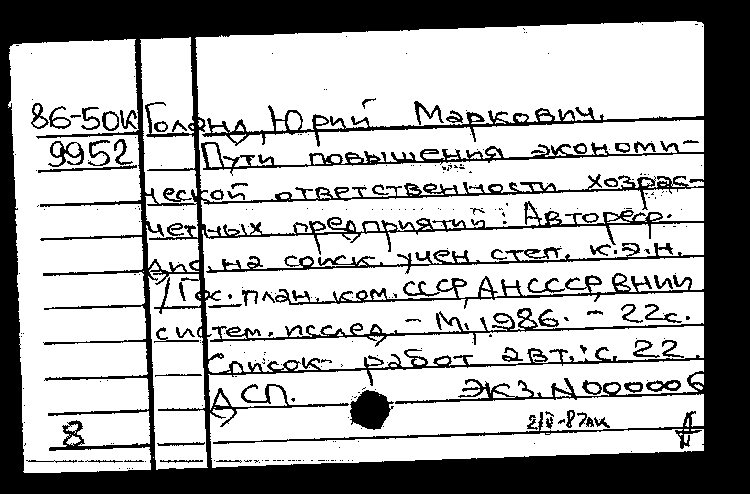 86-50К Голанд, Юрий Маркович.
9952 Пути повышения экономи-
ческой ответственности хозрас-
четных предприятий: Автореф.
дис. на соиск. учен. степ. к.э.н.
/Гос. план. ком. СССР, АН СССР, ВНИИ
систем. исслед. - М., 1986. - 22с.
Список работ авт.: с. 22.
ДСП. ЭКЗ. N000006
8